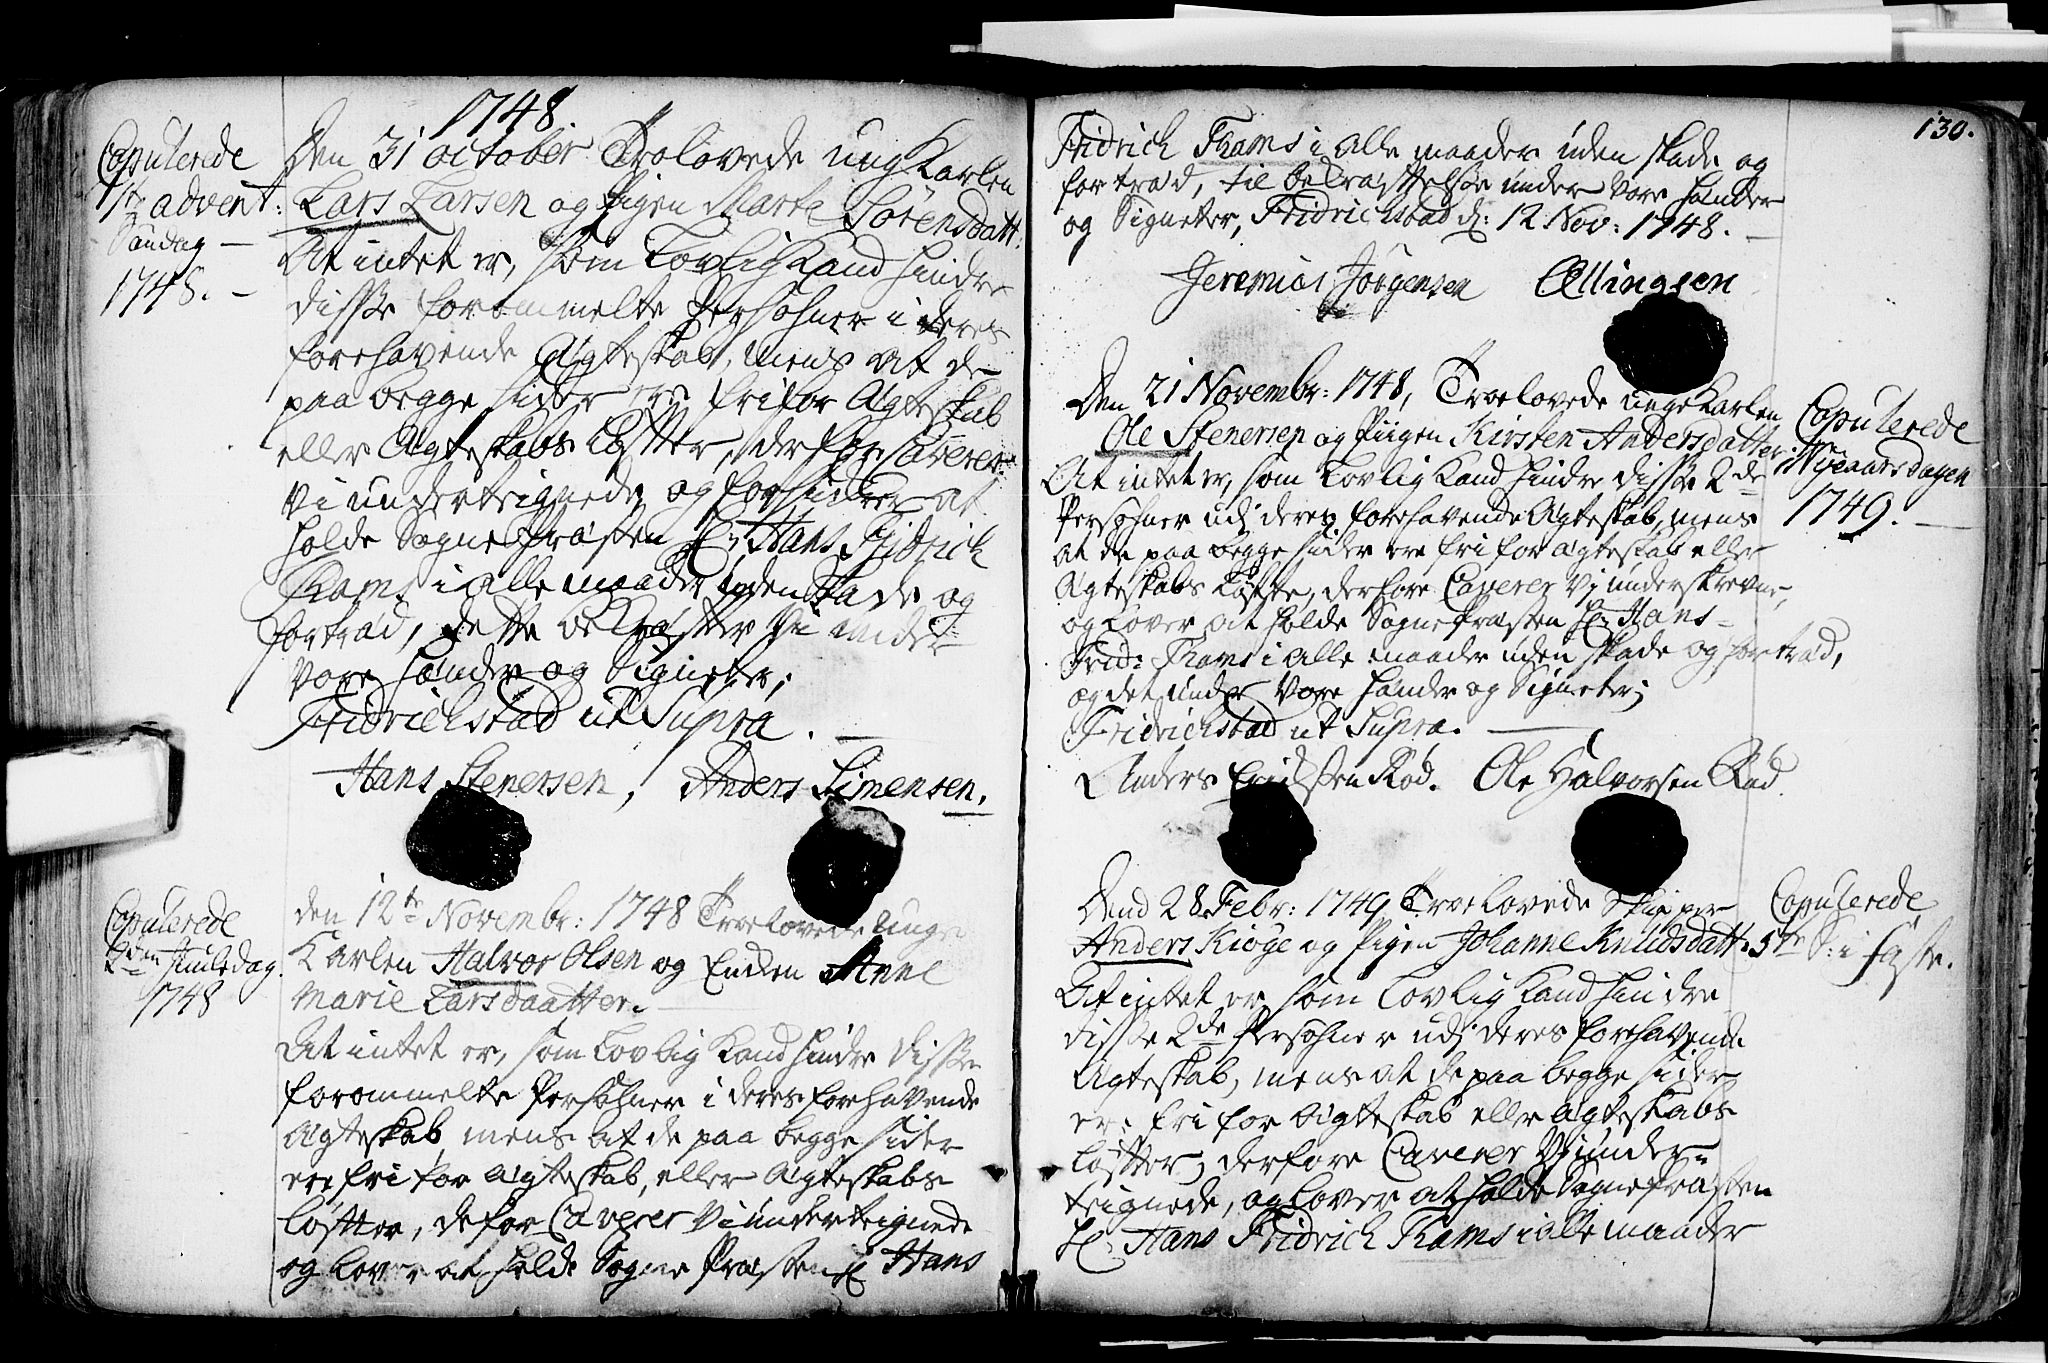 1748
Copulerede
1ste advent:
Søndag
1748.
Den 31 october Trolovede ung Karlen
Lars Larsen og Pigen Marte Sörensdatt.
At intet er, som Lovlig Kand hindre
disse forommelte Persohner i deres
forehavende Ægteskab, mens at de
paa begge sider ere fri for Ægteskab
eller Ægteskabs Løfter, derfor Caverer
vi undertegnede, og forsikrer at
holde Sogne Præsten Hr. Hans Fridrich
Thams i alle maader uden skade og
fortræd, dette bekræfter Vi under
vore hænder og Signeter;
Fridrichstad ut Supra.
Hans Stenersen, Anders Simensen.
Copulerede
2den Juledag
1748
den 12te Novembr: 1748 Troelovede unge
Karlen Halvor Olsen og Enken Anne
Marie Larsdaatter.
At intet er, som Lovlig Kand hindre disse
forommelte Persohner i deres forehavende
Ægteskab, mens at de paa begge sider
ere fri for Ægteskab, eller Ægteskabs
løfter, defor Caverer Vi undertegnede
og Lover at holde Sogne Præsten Hr. Hans
130.
Fridrich Thams i alle maader uden skade og
fortræd, til bekræftelse under Vore hænder
og Signeter, Fridrichstad d: 12 Nov: 1748.
Jeremias Jörgensen Ellingsen
Den 21 Novembr: 1748, Troelovede unge Karlen
Ole Stenersen og Piigen Kirsten Andersdatter
At intet er, som Lovlig Kand hindre disse 2de
Persohner udj deres forehavende Ægteskab, mens
at de paa begge sider ere fri for Ægteskab eller
Ægteskabs Løfte, derfore Caverer Vi underskrevne,
og Lover at holde Sogne Præsten Hr. Hans
Frid: Thams i alle maader uden skade og fortræd,
og det under Vore hænder og Signeter;
Fridrichstad ut Supra.
Anders Erichsen Rød. Ole Halvorsen Rød.
Copulerede
Nyeaarsdagen
1749.
Dend 28 Febr: 1749 Troelovede Skipper
Anders Kiöge og Pigen Johanne Knudsdatt.
At intet er som Lovlig Kand hindre
disse 2de Persohner udj deres forehavende
Ægteskab, mens at de paa begge sider
ere fri for Ægteskab eller Ægteskabs
løfter, derfore Caverer Vi under-
teignede, og Lover at holde Sogne Præsten
Hr. Hans Fridrich Thams i alle maader
Copulerede
5te S: i faste.